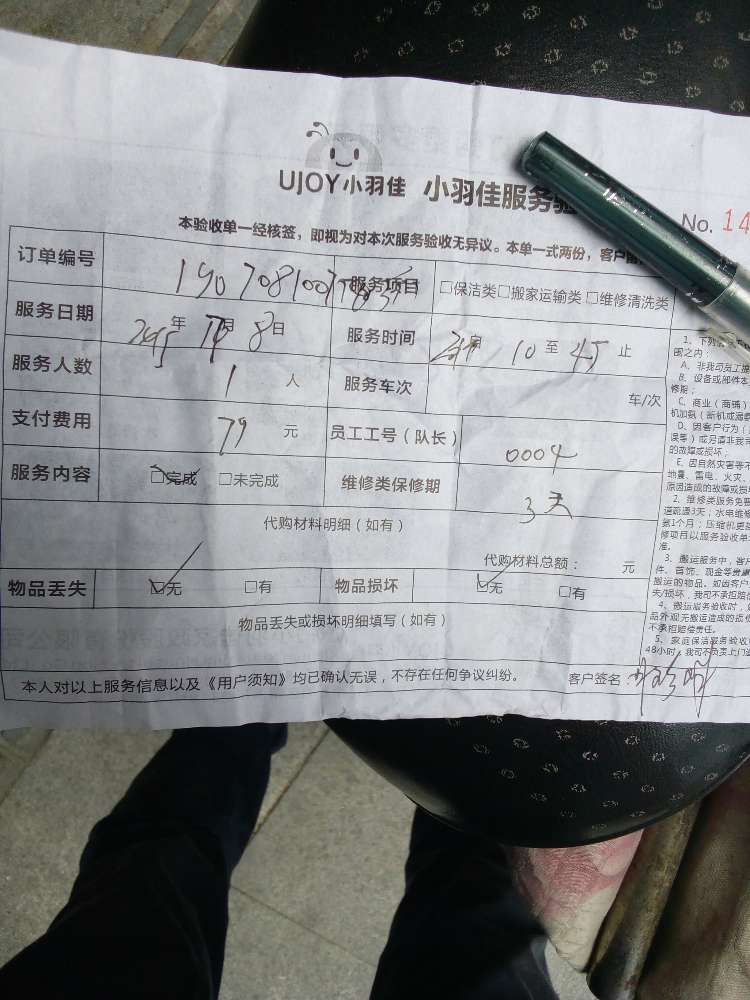 UJOY小羽佳 小羽佳服务验
No. 14
本验收单一经核签，即视为对本次服务验收无异议。本单一式两份，客户
订单编号 服务项目 □保洁类□搬家运输类□维修清洗类
服务日期 年 月 8日 服务时间 10 至 45 止
服务人数 1 人 服务车次 车/次
支付费用 79 元 员工工号（队长） 0004
服务内容 □完成 □未完成 维修类保修期 3天
代购材料明细（如有）
代购材料总额： 元
物品丢失 □无 □有 物品损坏 □无 □有
物品丢失或损坏明细填写（如有）
本人对以上服务信息以及《用户须知》均已确认无误，不存在任何争议纠纷。 客户签名：
1、下列
围之内：
A、非我司员工
B、设备或部件本
修期；
C、商业（商铺）
D、因客户行为
的故障或损坏；
E、因自然灾害等
地震、雷电、火灾、
原因造成的故障或损
2、维修类服务免费
道疏通3天；水电维修
氟1个月；压缩机更
修项目以服务验收单
准。
3、搬运服务中，客户
件、首饰、现金等贵重
搬运的物品，如因客户
失/损坏，我司不承担赔
4、搬运服务验收时，
品外观无搬运造成的损
不承担赔偿责任。
5、家庭保洁服务验收
48小时，我司不负责上门